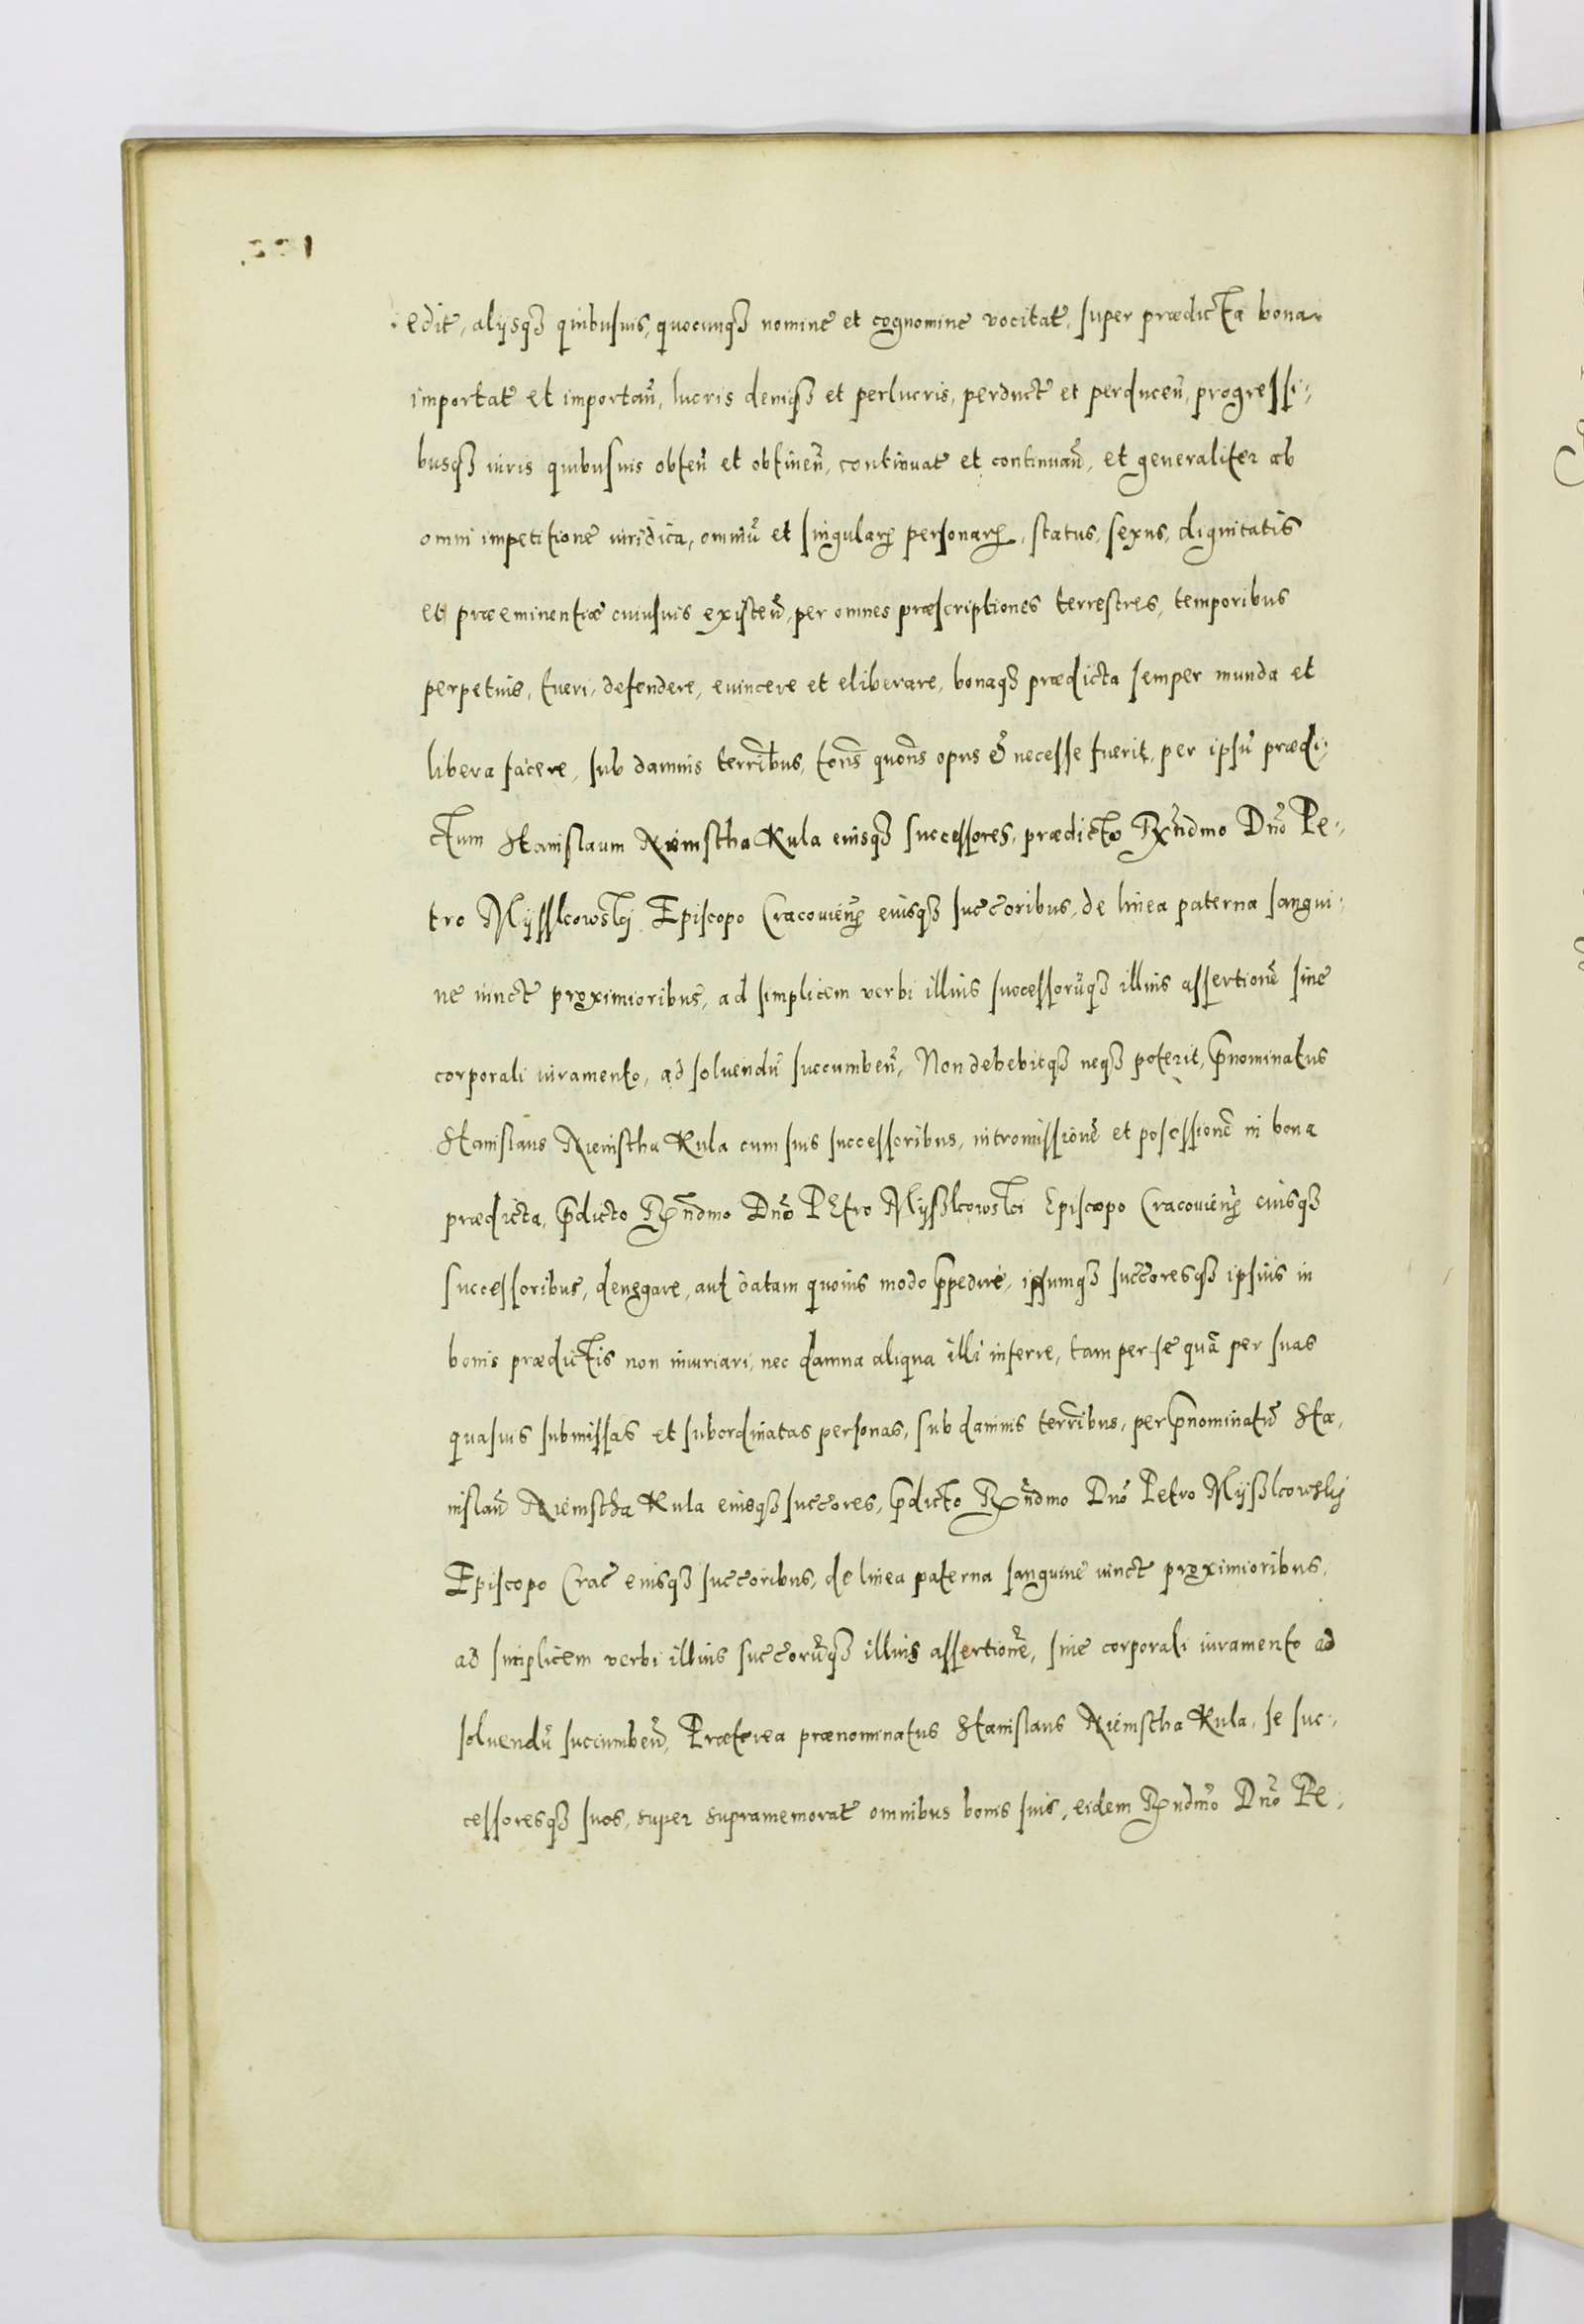 edit̃, alijsqȝ quibusuis, quocunqȝ nomine et cognomine vocitat̃, super prædicta bona
importat̃ et importan̄, lucris deniqȝ et perlucris, perduct̃ et perducen̄, progressi-
busqȝ iuris quibusuis obten̄ et obtinen̄, continuat̃ et continuan̄, et generaliter ab
omni impetitione iuridica, omniū et singularꝝ personarꝝ, status, sexus, dignitatis
et præeminentiæ cuiusuis existen̄, per omnes præscriptiones terrestres, temporibus
perpetuis, tueri, defendere, euincere et eliberare, bonaqȝ prædicta semper munda et
libera facere, sub damnis terrībus, tot̄s quot̄s opus & necesse fuerit, per ipsū prædi-
ctum Stanislaum Niemstha Kula eiusqȝ successores, prædicto Rx̄ndmo Dn̄o Pe-
tro Mysslcowskj Episcopo Cracouien̄ eiusqȝ succ̄oribus, de linea paterna sangui-
ne iunct̃ proximioribus, ad simplicem verbi illius successorūqȝ illius assertionē sine
corporali iuramento, ad soluendū succumben̄, Non debebitqȝ neqȝ poterit, p̄nominatus
Stanislaus Niemstha Kula cum suis successoribus, intromissionē et posessionē in bona
prædicta, p̄dicto Rx̄ndmo Dn̄o PEtro Myßlcowskj Episcopo Cracouien̄ eiusqȝ
successoribus, denegare, aut datam quouis modo p̄pedire, ipsumqȝ succ̄oresqȝ ipsius in
bonis prædictis non iniuriari, nec damna aliqua illi inferre, tam per se quā per suas
quasuis submissas et subordinatas personas, sub damnis terrībus, per p̄nominatū Sta-
nislaū Niemstha Kula eiusqȝ succ̄ores, p̄dicto Rx̄ndmo Dn̄o Petro Myßlcowskj
Episcopo Crac̄ eiusqȝ succ̄oribus, de linea paterna sanguine iunct̃ proximioribus,
ad simplicem verbi illius succ̄orūqȝ illius assertionē, sine corporali iuramento ad
soluendū succumben̄, Præterea prænominatus Stanislaus Niemstha Kula, se suc-
cessoresqȝ suos, super supramemorat̃ omnibus bonis suis, eidem Rx̄ndmo Dn̄o Pe-